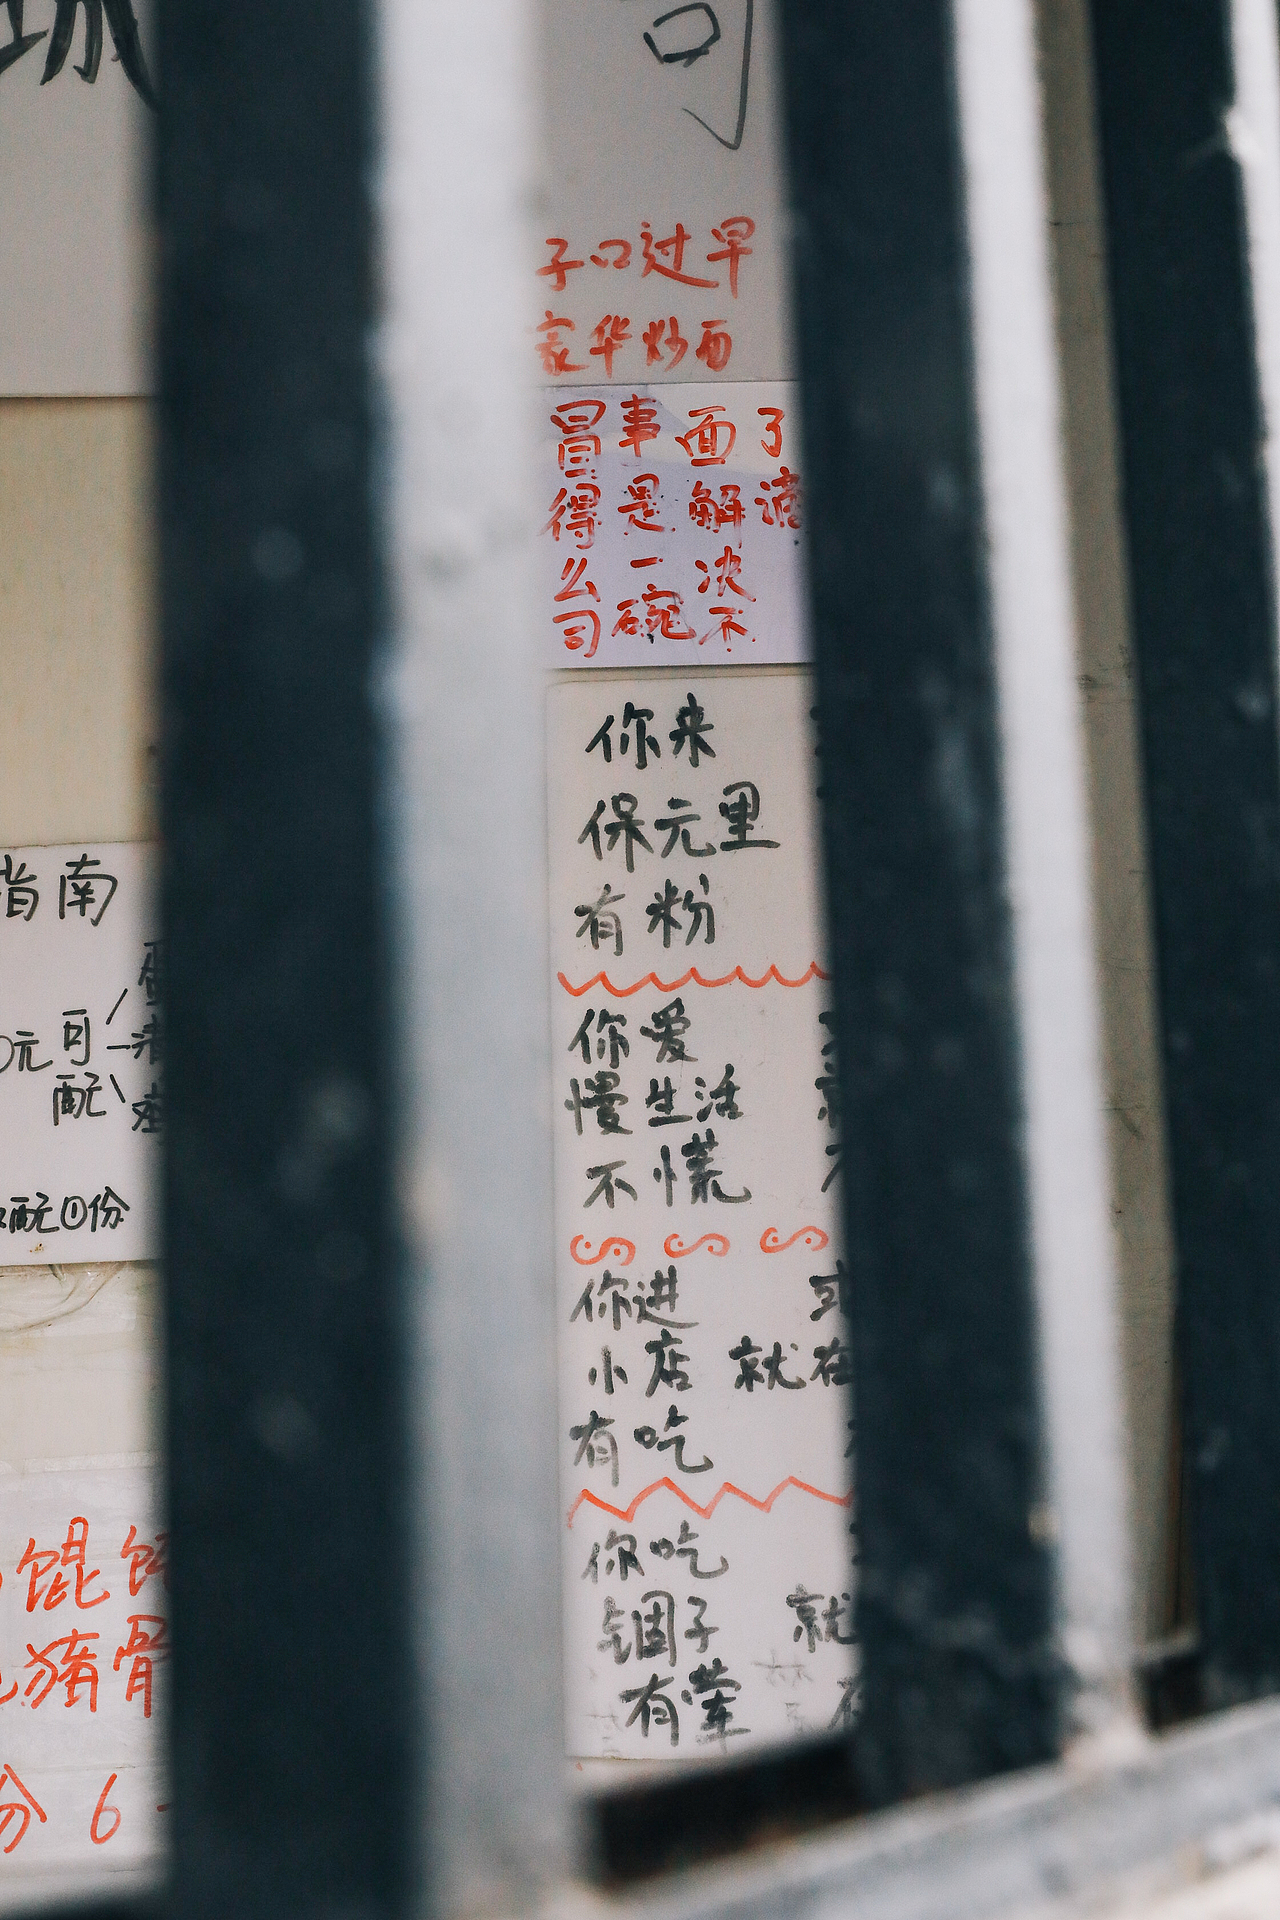 司
子口过早
家华炒面
冒事面了
得是解滴
么一决
司碗不
你来
保元里
有粉
你爱
慢生活
不慌
你进
小店 就在
有吃
你吃
锢子 就
有荤
指南
元可
配
配①份
馄
猪骨
份6